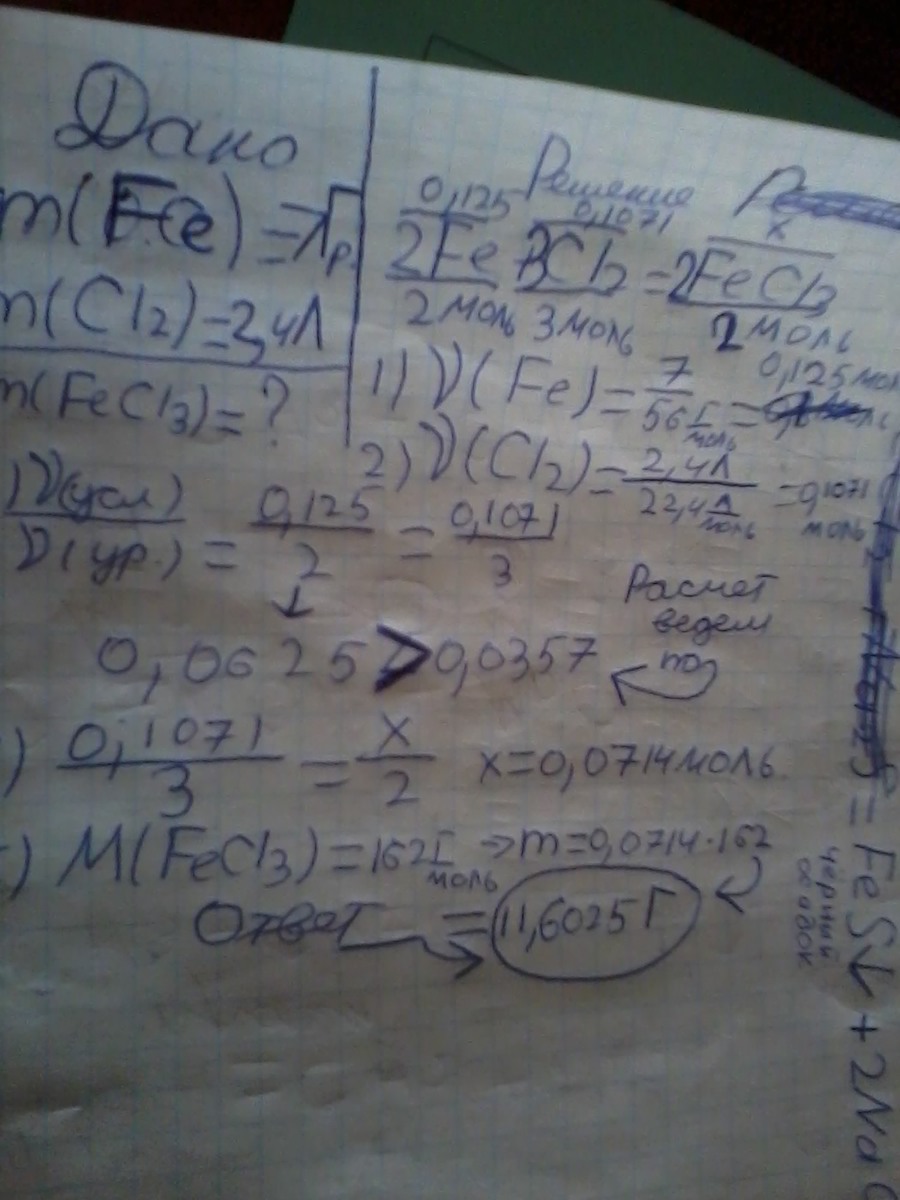 Дано
m(Fe)=7гр.
m(Cl2)=2,4л
m(FeCl3)=?
Решение
0,125 0,1071 x
2Fe 3Cl2=2FeCl3
2 моль 3 моль 2 моль
1) ν(Fe)=7/56 г/моль=0,125 моль
2) ν(Cl2)=2,4л/22,4 л/моль=0,1071 моль
)ν(усл)/ν(ур.)=0,125/2=0,1071/3
↓
0,0625>0,0357
Расчет
ведем
по
) 0,1071/3=x/2 x=0,0714 моль
) M(FeCl3)=162 г/моль ⇒m=0,0714·162
Ответ =11,6025 г
= FeS↓ + 2Na
чёрный
осадок